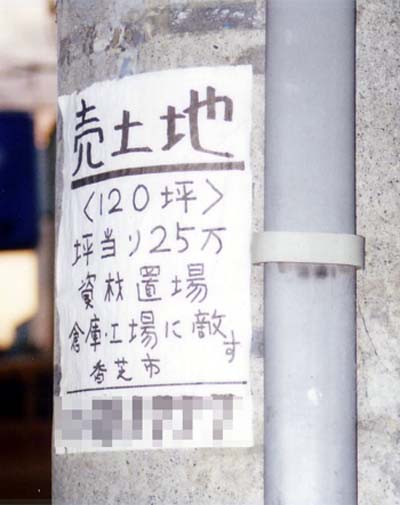 売土地
〈120坪〉
坪当り25万
資材置場
倉庫・工場に敵す
香芝市